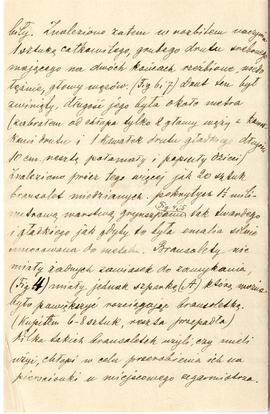 były. Znaleziono zatem w rozbitem naczyniu
1 sztukę całkowitego, grubego drutu srebrnego
mającego na dwóch końcach rzeźbione,
głowy wężów. (Fig 6 i 7) Drut ten był
zwinięty, długość jego była około metra
(zabrałem od chłopa tylko 2 głowy węży z kawałkami
drutu i 1 kawałek drutu gładkiego długości
10 cm, resztę połamały i pogubiły dzieci)
Znaleziono prócz tego więcej jak 20 sztuk
bransolet miedzianych, pokrytych
metrową warstwą grynszpanu tak twardego
i gładkiego jak gdyby to była emalia silnie
umocowana do metalu. Bransolety nie
miały żadnych zawiasek do zamykania,
(Fig 4) miały jednak szparkę (A) którą można
było powiększyć rozciągając bransoletkę.
(Kupiłem 6-8 sztuk, reszta przepadła)
Kilka takich bransoletek użyli, czy mieli
użyć, chłopi w celu przerobienia ich na
pierścionki u miejscowego zegarmistrza.